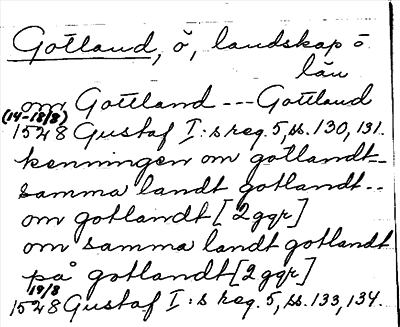 Gotland, ö, landskap o
län
om Gottland --- Gottland
(14-18/8)
1528 Gustaf I:s reg. 5, ss. 130, 131.
kenningen om gotlandt--
samma landt gotlandt--
om gotlandt [2 ggr]
om samma landt gotlandt
på gotlandt [2 ggr]
19/8
1528 Gustaf I:s reg. 5, ss. 133, 134.